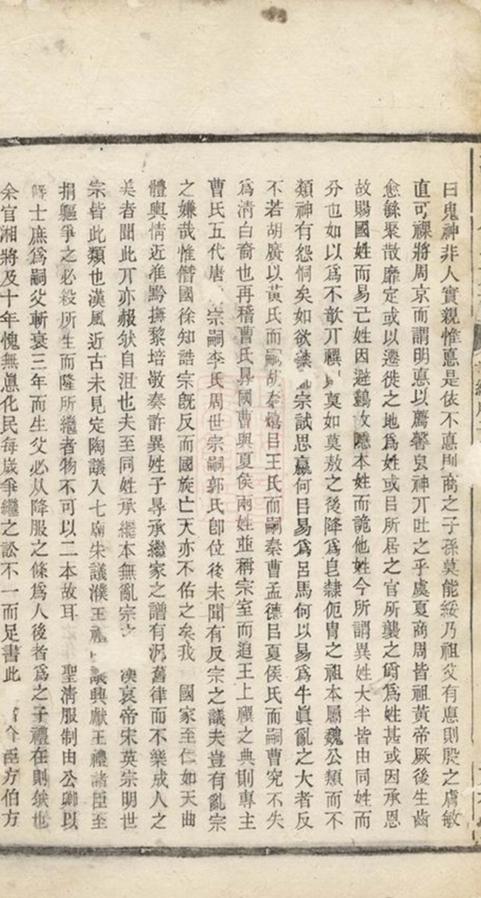 曰鬼神非人實親惟悳是依不悳則商之子孫莫能綏乃祖父有悳則殷之膚敏
直可祼將周京而謂明悳以薦馨㒵神丌吐之乎虞夏商周皆祖黃帝厥後生齒
愈緐聚散靡定或以遷徙之地爲姓或目所居之官所襲之爵爲姓甚或因承恩
故賜國姓而易己姓因避難故隱本姓而詭他姓今所謂異姓大半皆由同姓而
分也如以爲不歆丌禩莫如莫敖之後降爲皂隸伋胄之祖本屬魏公類而不
類神有怨恫矣如欲議宗試思嬴何目易爲呂馬何以易爲牛眞亂之大者反
不若胡廣以黃氏而嗣胡秦嬉目王氏而嗣秦曹孟德目夏侯氏而嗣曹究不失
爲清白裔也再稽曹氏異國曹與夏侯兩姓並稱宗室而追王上禩之典則專主
曹氏五代唐 宗嗣李氏周世宗嗣郭氏卽位後未聞有反宗之議夫豈有亂宗
之嫌哉惟僭國徐知誥宗旣反而國旋亡天亦不佑之矣我 國家至仁如天曲
體輿情近准黔撫黎培敬奏許異姓子㝷承繼家之譜有況舊律而不樂成人之
美者聞此丌亦赧然自沮也夫至同姓承繼本無亂宗之 漢哀帝宋英宗明世
宗皆此類也漢風近古未見定陶議入七廟朱議濮王禮 議興獻王禮諸臣至
捐軀爭之必殺所生而隆所繼者物不可以二本故耳 聖淸服制由公卿以
曁士庶爲嗣父斬衰三年而生父必从降服之條爲人後者爲之子禮在則然也
余官湘將及十年愧無悳化民每歲爭繼之訟不一而足書此 方伯方